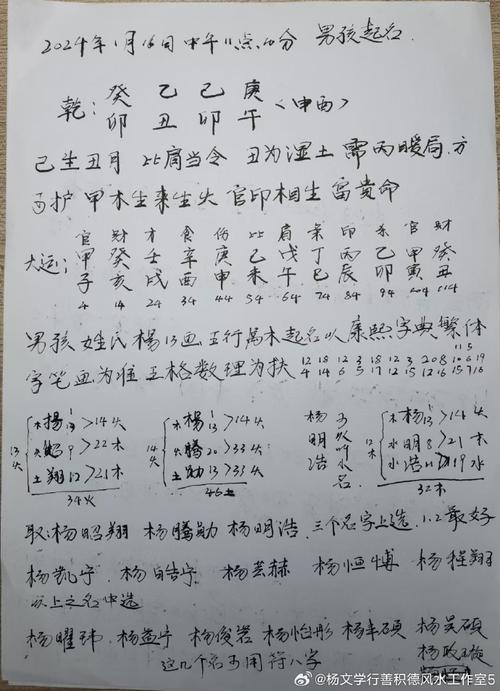 2024年1月16日中午11点10分 男孩起名.
乾: 癸 乙 己 庚
卯 丑 卯 午 (申酉)
己生丑月 比肩当令 丑为湿土 需丙暖局.方
可护 甲木生来生火 官印相生 富贵命
官 财 才 食 伤 比 肩 枭 印 杀 官 财
大运: 甲 癸 壬 辛 庚 己 戊 丁 丙 乙 甲 癸
子 亥 戌 酉 申 未 午 巳 辰 卯 寅 丑
4 14 24 34 44 54 64 74 84 94 104 114
男孩 姓氏 楊13画 五行属木起名以 康熙字典繁体
字笔画为准 五格数理为扶
12 18 12 3 18 12 3 20 8 10 6 19
4 14 6 5 17 12 15 12 16 15 7 16
13火 木楊 13 >14火
火昭 9 >22木
土翔 12 >21木
34火
14火 木楊 13 >14火
火腾 20 >33火
土勋 13 >33火
46土
杨明浩
12木 木楊 13 >14火
水明 8 >21木
水浩 11 >19水
32木
取:杨昭翔 杨腾勋 杨明浩. 三个名字上选. 1.2最好
杨凯宁. 杨皓宁 杨芸赫 杨恒博 杨程翔
以上之名中选
杨曜玮. 杨益宁 杨俊岩 杨怡彤 杨丰硕 杨昊硕
这几个名可用符八字
@杨文学行善积德风水工作室5